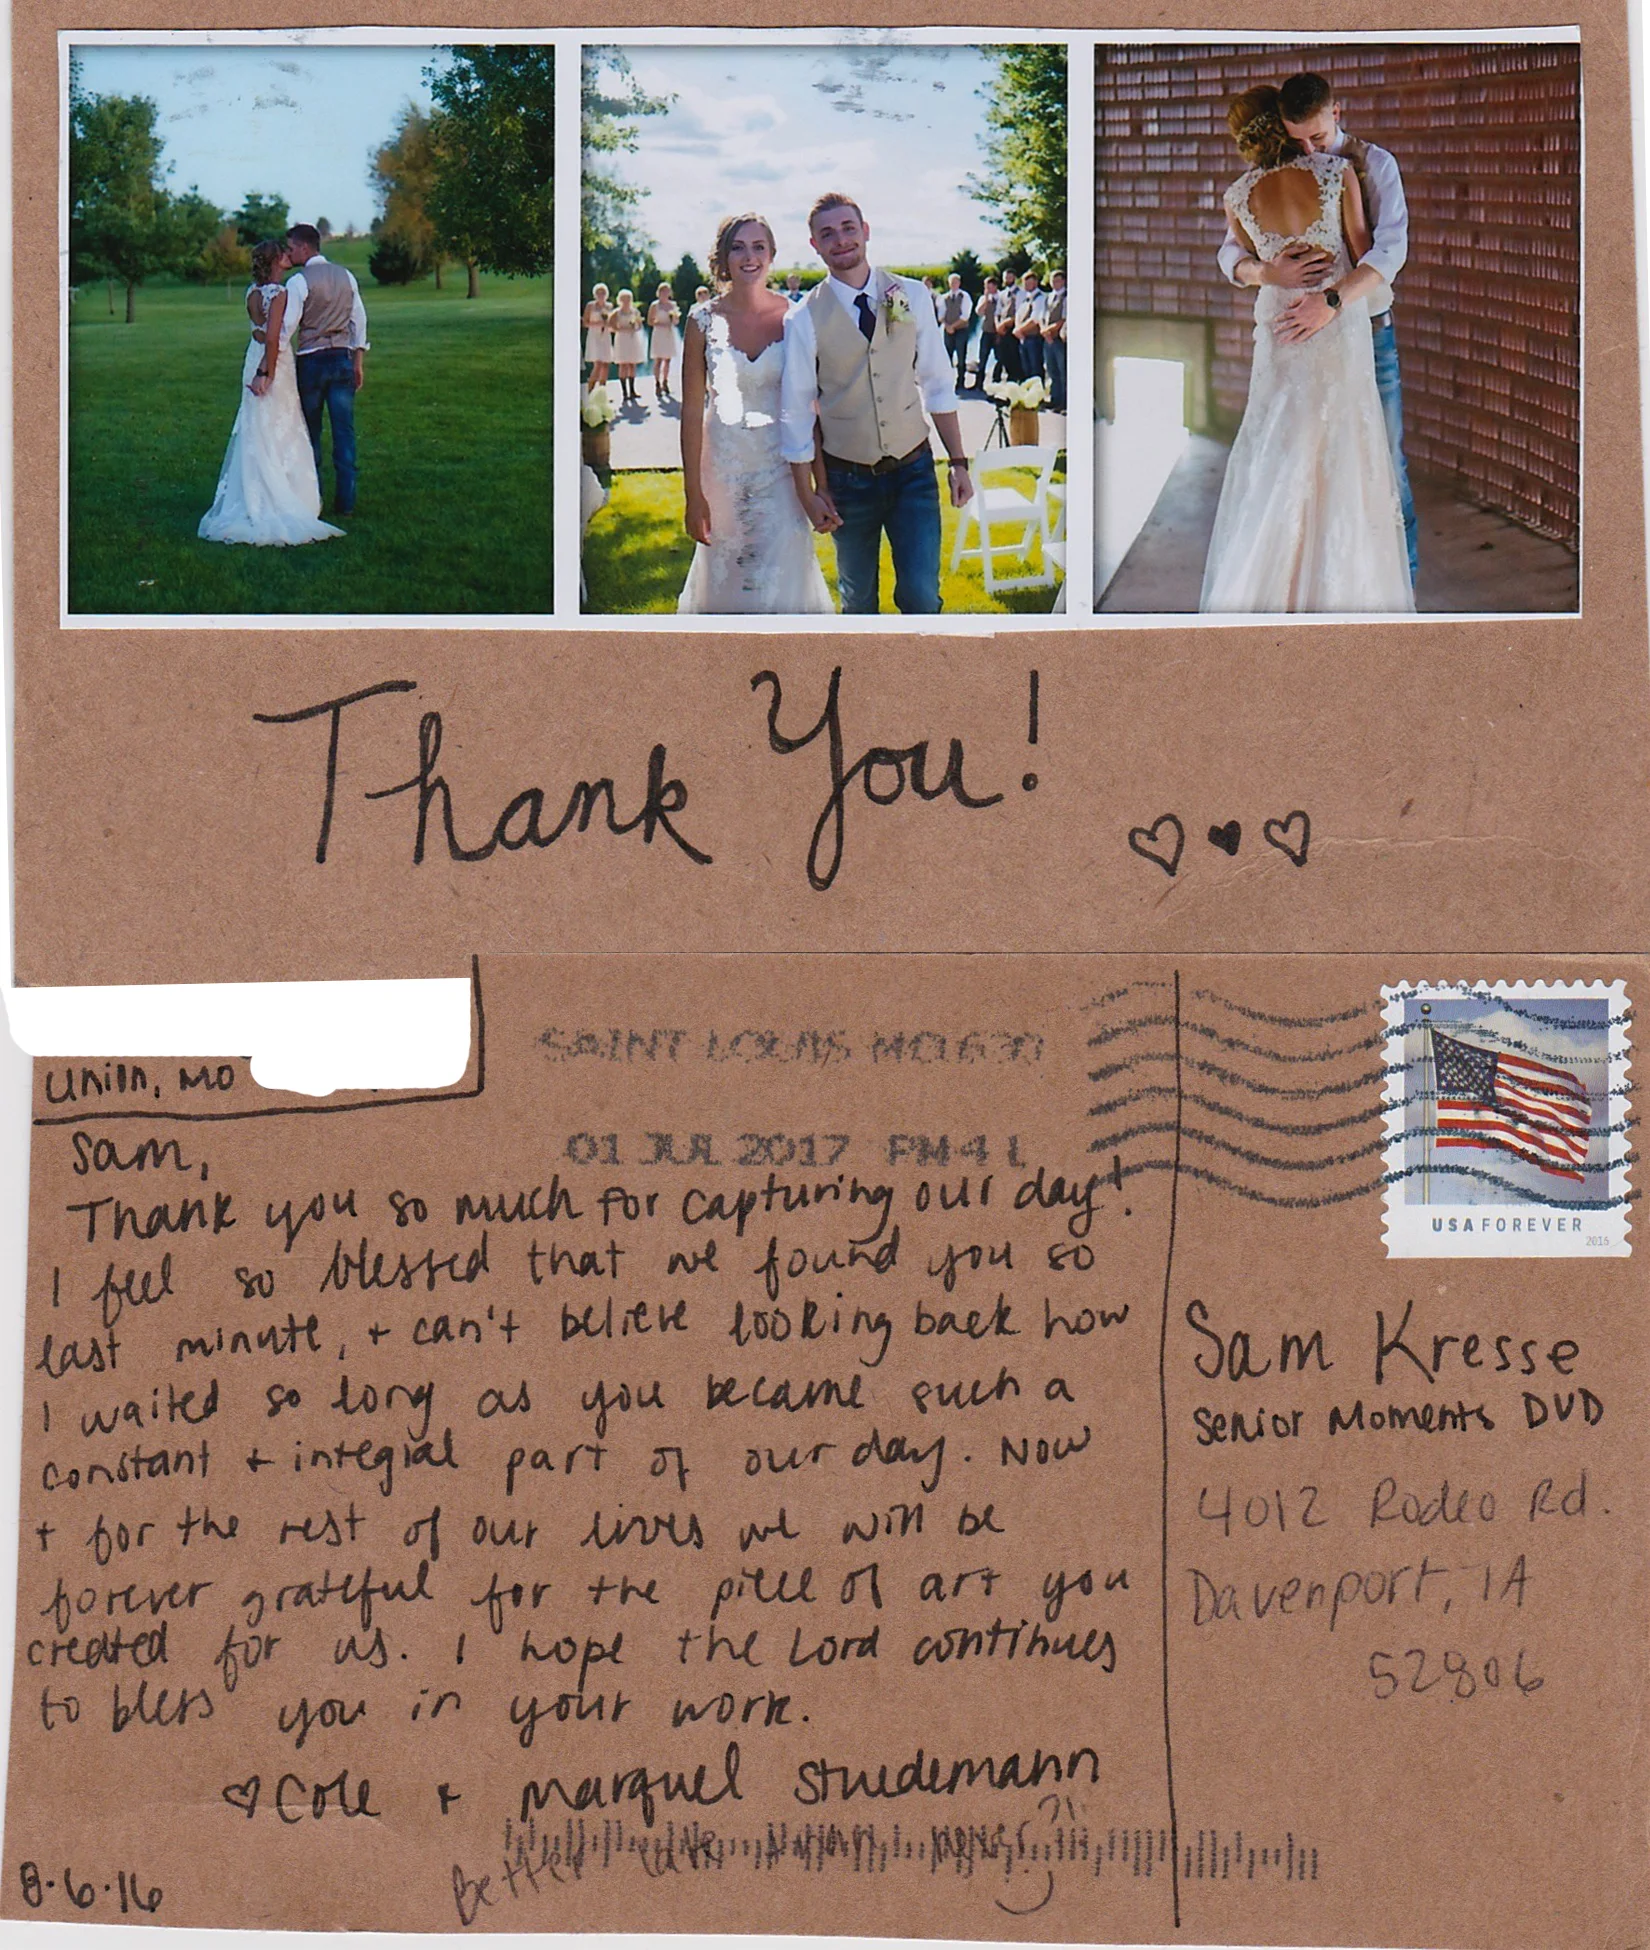 Thank You!
Union, MO
SAINT LOUIS MO 630
01 JUL 2017 PM 4 L
USA FOREVER
2015
Sam,
Thank you so much for capturing our day!
I feel so blessed that we found you so
last minute, + can't believe looking back how
I waited so long as you became such a
constant + integral part of our day. Now
+ for the rest of our lives we will be
forever grateful for the piece of art you
created for us. I hope the Lord continues
to bless you in your work.
♡ Cole + Marquel Stuedemann
Better late than never?!
8.6.16
Sam Kresse
Senior Moments DVD
4012 Rodeo Rd.
Davenport, IA
52806